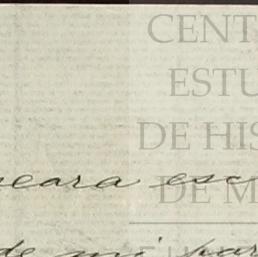 CENT
ESTU
DE HIS
eara esc
DE M
de mi par